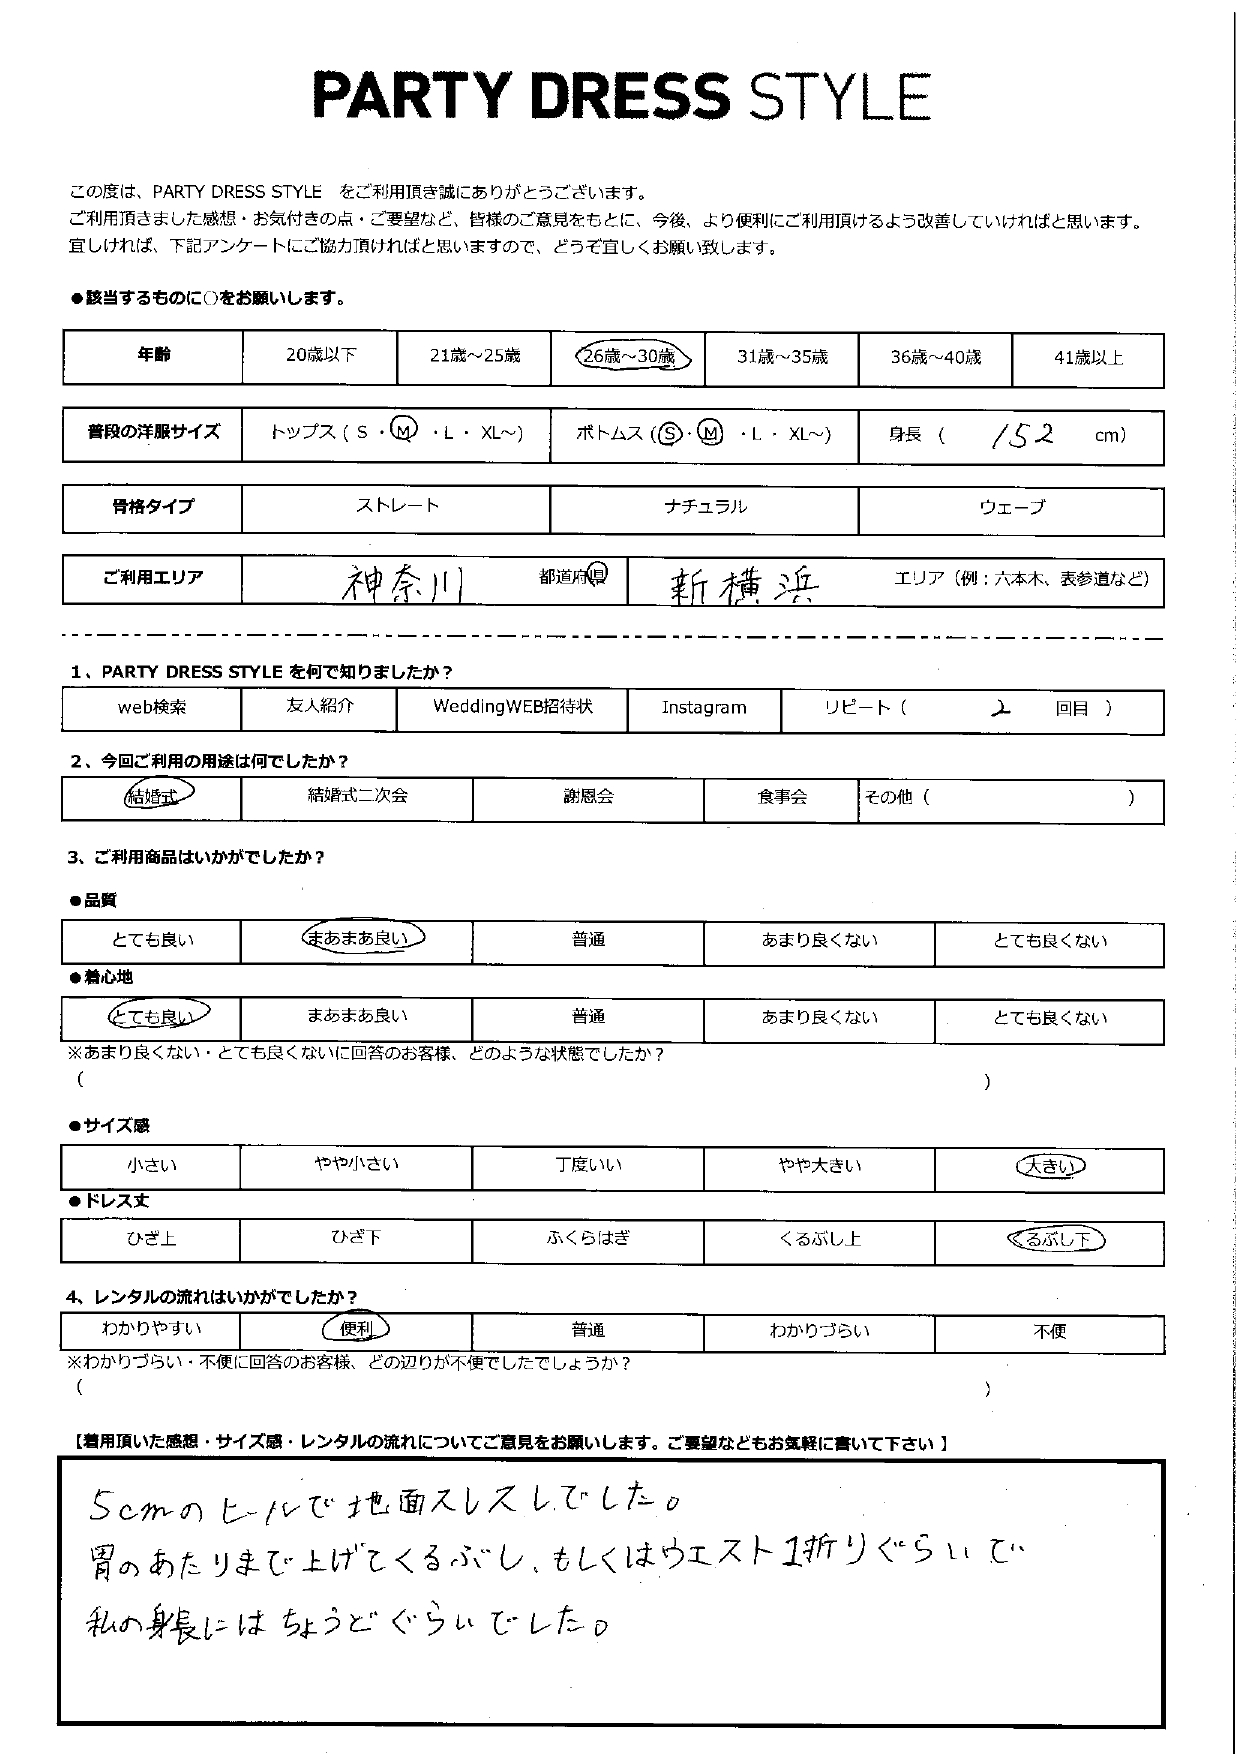 PARTY DRESS STYLE
この度は、PARTY DRESS STYLE をご利用頂き誠にありがとうございます。
ご利用頂きました感想・お気付きの点・ご要望など、皆様のご意見をもとに、今後、より便利にご利用頂けるよう改善していければと思います。
宜しければ、下記アンケートにご協力頂ければと思いますので、どうぞ宜しくお願い致します。
●該当するものに○をお願いします。
年齢 20歳以下 21歳～25歳 26歳～30歳 31歳～35歳 36歳～40歳 41歳以上
普段の洋服サイズ トップス ( S ・ M ・ L ・ XL～) ボトムス ( S ・ M ・ L ・ XL～) 身長 ( 152 cm)
骨格タイプ ストレート ナチュラル ウェーブ
ご利用エリア 神奈川 都道府県 新横浜 エリア（例：六本木、表参道など）
1、PARTY DRESS STYLE を何で知りましたか？
web検索 友人紹介 WeddingWEB招待状 Instagram リピート（ 2 回目 ）
2、今回ご利用の用途は何でしたか？
結婚式 結婚式二次会 謝恩会 食事会 その他（ ）
3、ご利用商品はいかがでしたか？
●品質
とても良い まあまあ良い 普通 あまり良くない とても良くない
●着心地
とても良い まあまあ良い 普通 あまり良くない とても良くない
※あまり良くない・とても良くないに回答のお客様、どのような状態でしたか？
（ ）
●サイズ感
小さい やや小さい 丁度いい やや大きい 大きい
●ドレス丈
ひざ上 ひざ下 ふくらはぎ くるぶし上 くるぶし下
4、レンタルの流れはいかがでしたか？
わかりやすい 便利 普通 わかりづらい 不便
※わかりづらい・不便に回答のお客様、どの辺りが不便でしたでしょうか？
（ ）
【着用頂いた感想・サイズ感・レンタルの流れについてご意見をお願いします。ご要望などもお気軽に書いて下さい 】
5cmのヒールで地面スレスレでした。
胃のあたりまで上げてくるぶし、もしくはウエスト1折りぐらいで
私の身長にはちょうどぐらいでした。